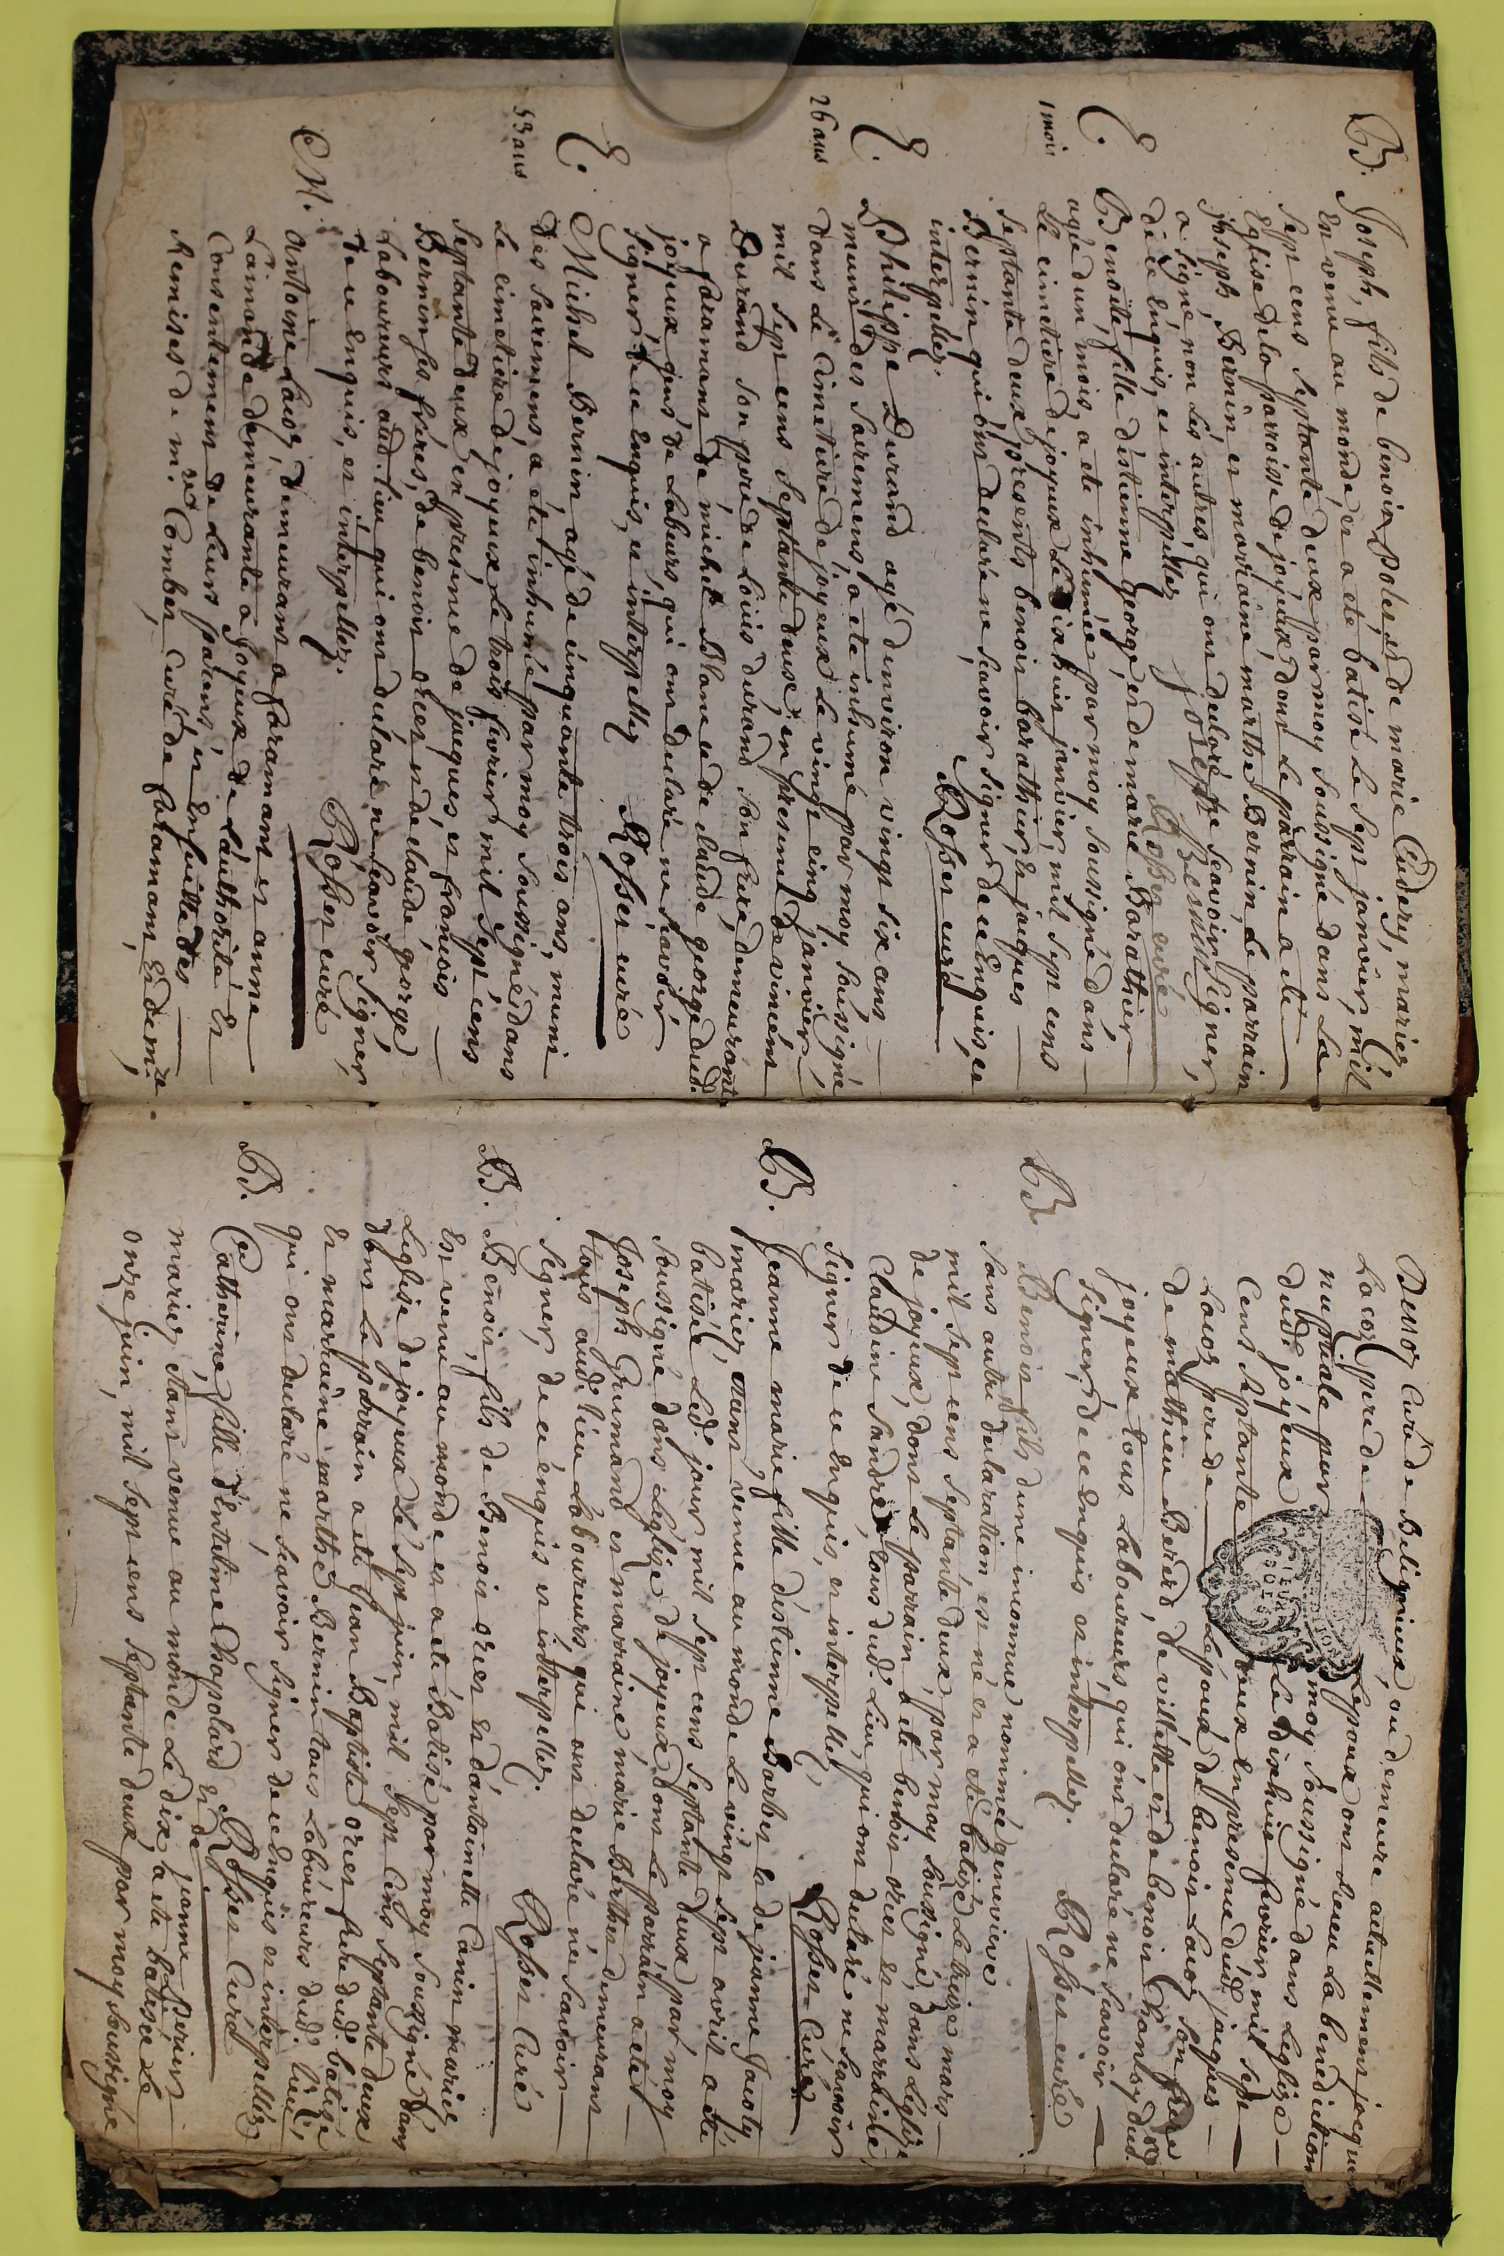 B. Joseph, fils de benoit Soles et de marie Cudery, mariez
En venu au monde, et a eté batisé le sept janvier, mil
sept cens septante deux par moy soussigné dans la
Eglise de la parroisse de joyeux, dont le parrain a eté
joseph Bernin et marraine marthe Bernin, le parrain
a signé non les autres qui ont declaré ne scavoir signer,
de ce Enquis, et interpellez
joseph Bernin Rosser curé
E.
1 mois
Benoite fille d'estienne george, et de marie Barathier
agé d'un mois, a eté inhumée par moy soussigné dans
le cimetiere de joyeux le dixhuit janvier, mil sept cens
septante deux presents benoit barathier, & jaques
Bernin qui ont declaré ne scavoir signer de ce Enquis, et
interpellez.
Rosser curé
E.
26 ans
Philippe Durand agé denviron vingt six ans
muni des sacremens, a eté inhumé par moy soussigné
dans le Cimetiere de joyeux le vingt cinq janvier,
mil sept cens septante deux, en presence de vincent
Durand son pere de Louis durand son frere, demeurant
a faramans de michel Blanc et de claude george dud.
joyeux gens de Labeurs qui ont declaré ne scavoir
signer, de ce Enquis, et interpellez
Rosser curé
E.
53 ans
Michel Bernin, agé de cinquante trois ans, muni
des sacremens, a eté inhumé par moy soussigné dans
le cimetiere de joyeux le trois fevrier mil sept cens
septante deux en presence de jacques, et francois
Bernin ses freres, de benoit orcet et de claude george
Laboureurs aud. lieu qui ont declaré ne scavoir signer
de ce Enquis, et interpellez.
Rosser curé
M.
Antoine Lacoz, demeurant a faramans et anne
demeurante a joyeux de l'authorité et
Consentement de leurs parens, et Ensuitte des
Remises de mre. Comber, Curé de faramans, et de mre.
Curé de Beligneux, ou demeure actuellement jacque
Lacoz pere de Lepoux ont receu la benediction
nuptiale par moy soussigné dans Leglize
dudt. joyeux Le dixhuit fevrier mil sept
Cens septante deux En presence dudt. jacques
Lacoz pere de Lepoux de benoit Lacoz son frere
de mathieu Berod, de villette et de benoit Chanloy dud.
joyeux tous Laboureurs qui ont declaré ne scavoir
signer, de ce Enquis et interpellez.
Rosser curé
B
Benoit fils d'une inconnue nommée genevieve
sans autre declaration est né et a eté batizé Le treize mars
mil sept cens septante deux, par moy soussigné, dans Léglize
de joyeux, dont Le parrain a eté benoit orcet et marraine
Claudine Sandre, tous dud. Lieu, qui ont declaré ne scavoir
signer de ce Enquis, et interpellez,
Rosser Curé
B.
Jeanne marie fille d'estienne Barbet et de jeanne Jacoty
mariez, Etans venue au monde Le vingt sept avril a eté
batisée Led. jour mil sept cens septante deux par moy
soussigné dans Léglize de joyeux dont Le parrain a eté
Joseph Grumand et marraine marie Berthet demeurans
tous aud. lieu Laboureurs, qui ont declaré ne scavoir
signer, de ce enquis et interpellez.
Rosser Curé
B.
Benoit, fils de Benoit orcet et d'antoinette Canin mariez
Est venu au monde et a eté Batisé par moy soussigné dans
Leglise de joyeux Le sept juin, mil sept Cens septante deux
dont Le parrain a eté jean Baptiste orcet frere dud. batisé
Et marraine marthe Bernin tous Laboureurs dud. lieu,
qui ont declaré ne scavoir signer de ce Enquis et interpellez
Rosser Curé
B.
Catherine fille d'Entelme Chapolard et de jeanne Berier
mariez Etans venue au monde Le dix, a eté batisée Le
onze juin, mil sept cens septante deux par moy soussigné